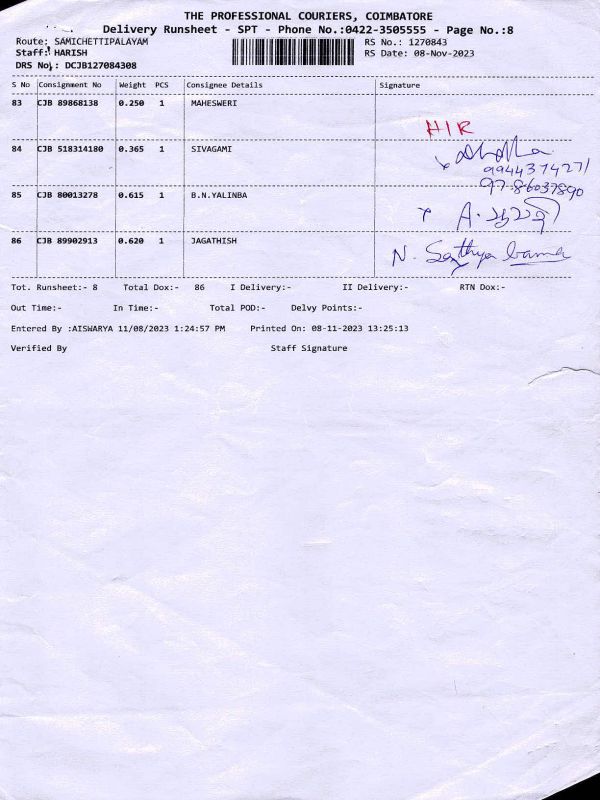 THE PROFESSIONAL COURIERS, COIMBATORE
Delivery Runsheet - SPT - Phone No.:0422-3505555 - Page No.:8
Route: SAMICHETTIPALAYAM RS No.: 1270843
Staff: HARISH RS Date: 08-Nov-2023
DRS No.: DCJB127084308
S No Consignment No Weight PCS Consignee Details Signature
83 CJB 89868138 0.250 1 MAHESWERI
HIR
84 CJB 518314180 0.365 1 SIVAGAMI
9944374271
97-86037890
85 CJB 80013278 0.615 1 B.N.YALINBA
A.
86 CJB 89902913 0.620 1 JAGATHISH
N. Sathya bama
Tot. Runsheet:- 8 Total Dox:- 86 I Delivery:- II Delivery:- RTN Dox:-
Out Time:- In Time:- Total POD:- Delvy Points:-
Entered By :AISWARYA 11/08/2023 1:24:57 PM Printed On: 08-11-2023 13:25:13
Verified By Staff Signature